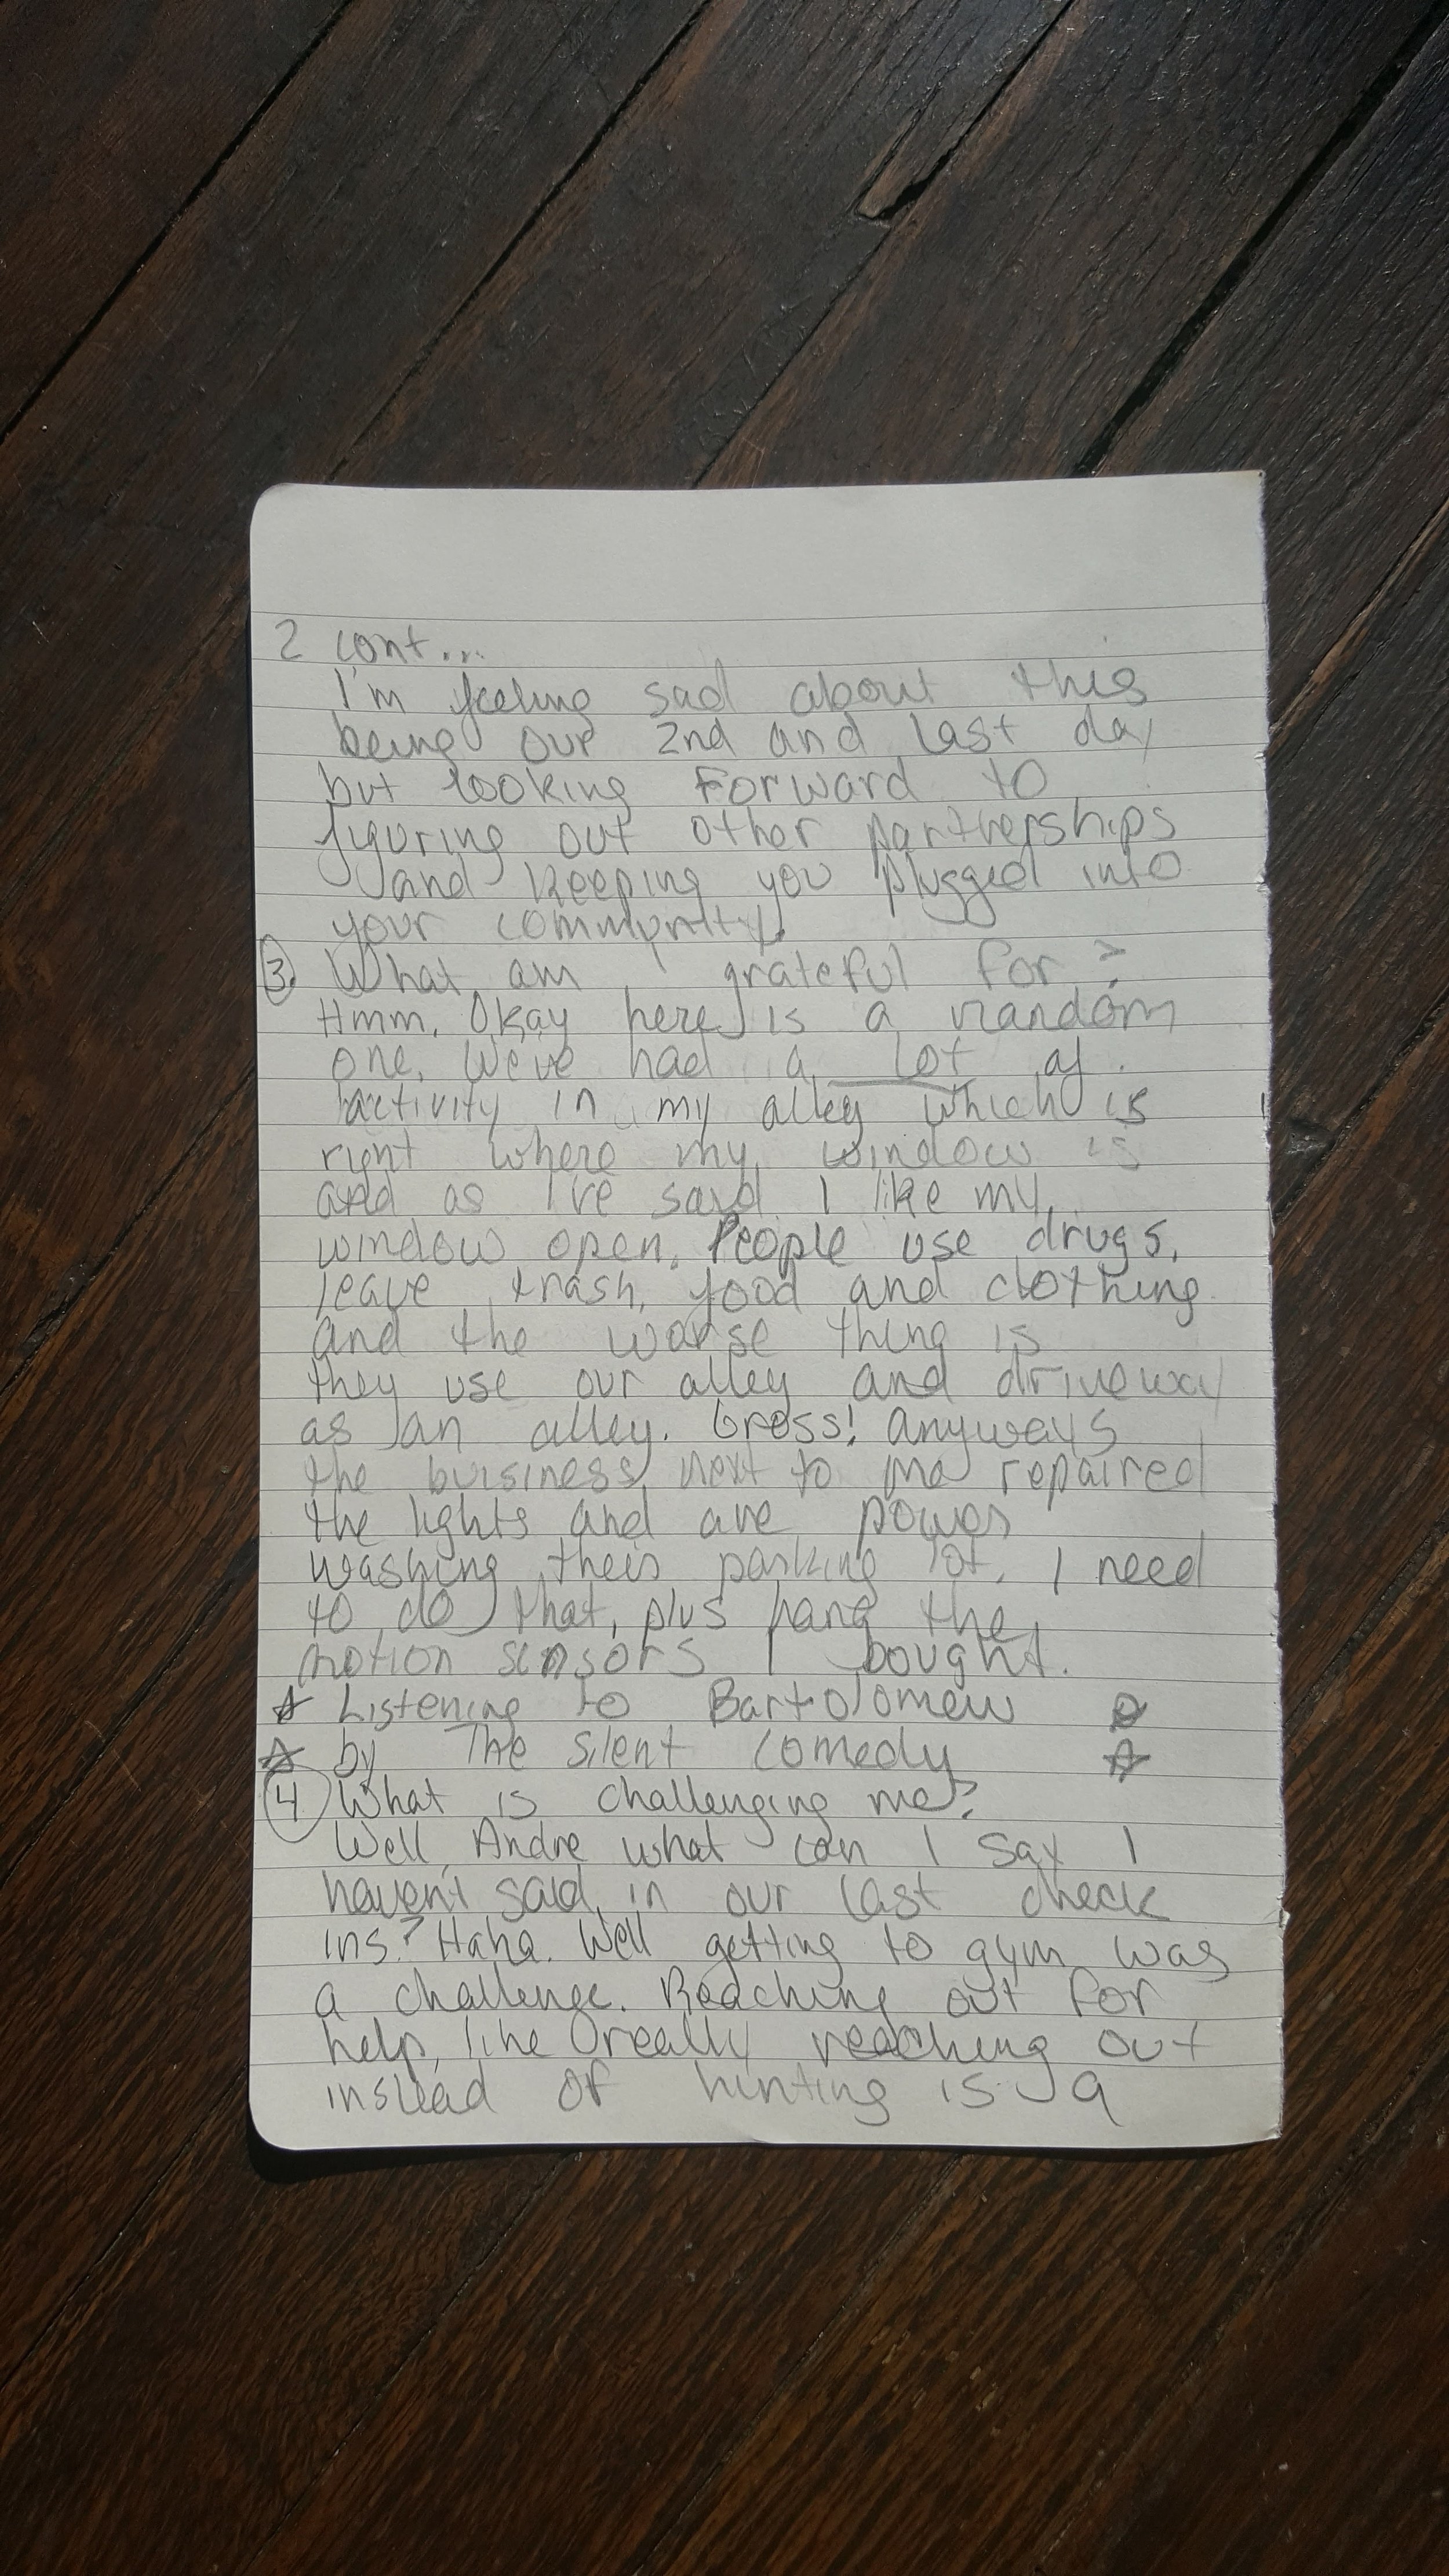 2 cont...
I'm feeling sad about this
being our 2nd and last day
but looking forward to
figuring out other partnerships
and keeping you plugged into
your community.
3. What am I grateful for?
Hmm. Okay here is a random
one. We've had a lot of
activity in my alley which is
right where my window is
and as I've said I like my
window open. People use drugs,
leave trash, food and clothing
and the worse thing is
they use our alley and driveway
as an alley. Gross! Anyways
the buisiness next to me repaired
the lights and are power
washing their parking lot. I need
to do that, plus hang the
motion sensors I bought.
☆ Listening to Bartolomew ☆
☆ by The Silent Comedy ☆
4 What is challenging me?
Well Andre what can I say I
haven't said in our last check
ins? Haha. Well getting to gym was
a challenge. Reaching out for
help, like really reaching out
instead of hinting is a